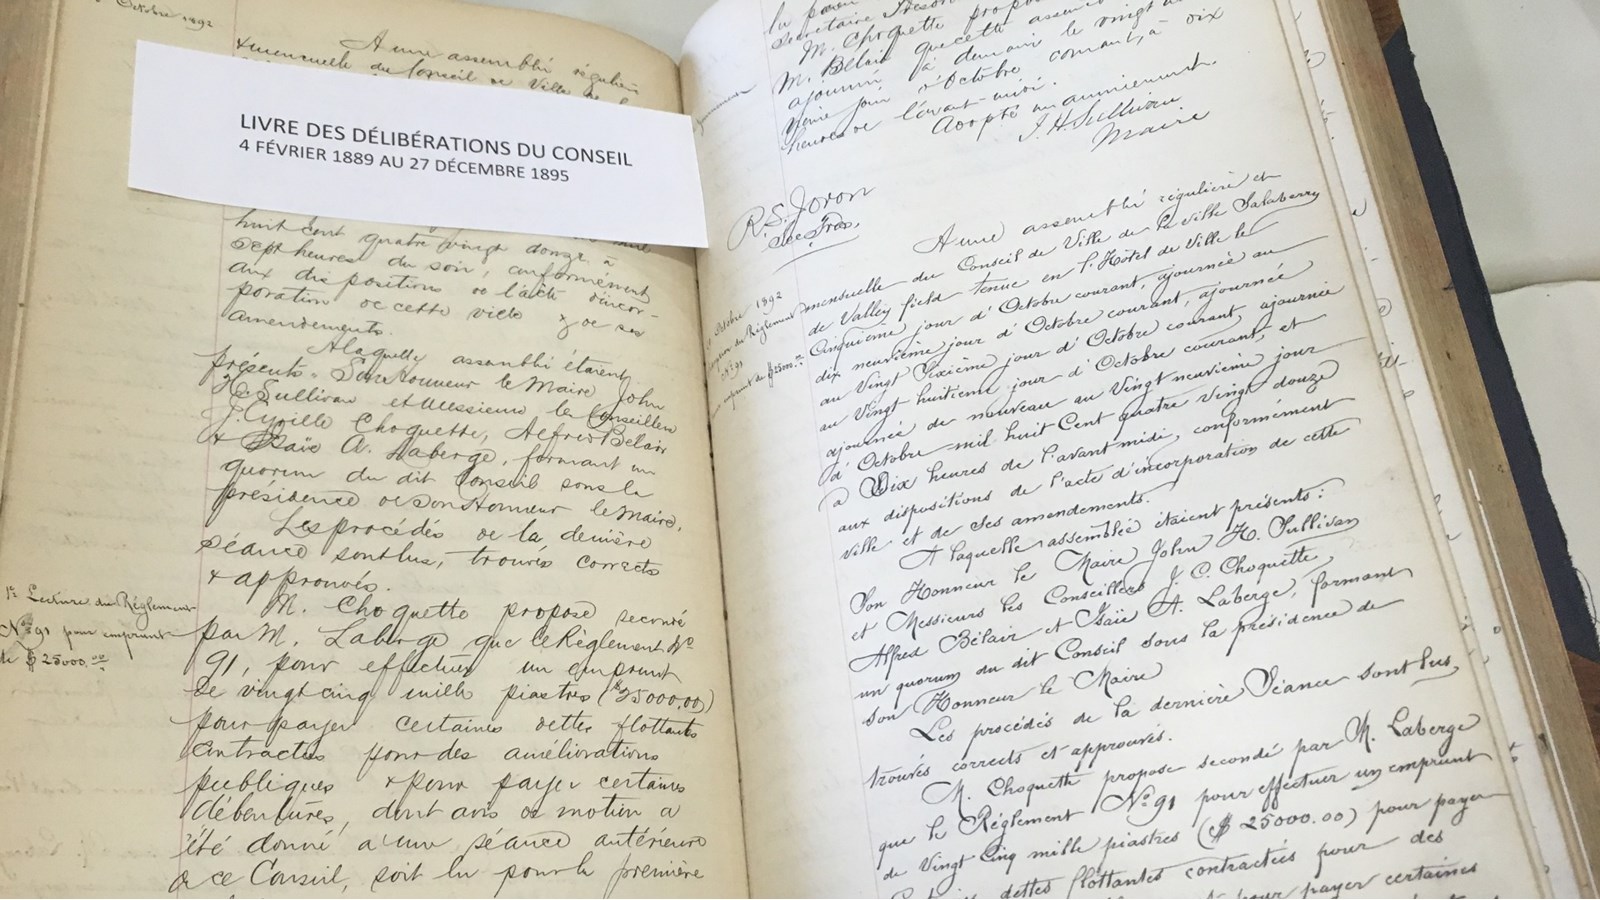 Octobre 1892
A une assemblé régulière
& mensuelle du Conseil de Ville de la
LIVRE DES DÉLIBÉRATIONS DU CONSEIL
4 FÉVRIER 1889 AU 27 DÉCEMBRE 1895
huit cent quatre vingt douze à
sept heures du soir, conformément
aux dispositions de l'acte d'incor-
poration de cette ville & de ses
amendements.
A laquelle assemblé étaient
présents, Son Honneur le Maire John
H. Sullivan et Messieurs les Conseillers
J. Cyrille Choquette, Alfred Belair
& Isaïe A. Laberge, formant un
quorum du dit Conseil sous la
présidence de Son Honneur le Maire.
Les procédés de la dernière
séance sont lus, trouvés corrects
& approuvés.
1re Lecture du Règlement
No 91 pour emprunt
de $25000.00
M. Choquette propose secondé
par M. Laberge que le Règlement No
91, pour effectuer un emprunt
de vingt cinq mille piastres ($25000.00)
pour payer certaines dettes flottantes
contractées pour des améliorations
publiques & pour payer certaines
débentures, dont avis de motion a
été donné à une séance antérieure
de ce Conseil, soit lu pour la première
secrétaire Trésorier
M. Choquette propose
M. Bélair que cette assemblée
ajourné à demain le vingt
ième jour d'Octobre courant, à dix
heures de l'avant-midi.
Adopté unanimement.
J. H. Sullivan
Maire
R. S. Joron
Sec. Trés.
Octobre 1892
du Règlement
No 91
emprunt de $25000.00
A une assemblé régulière et
mensuelle du Conseil de Ville de la ville Salaberry
de Valleyfield tenue en l'Hôtel de Ville le
Cinquième jour d'Octobre courant, ajournée au
dix neuvième jour d'Octobre courant, ajournée
au Vingt Sixième jour d'Octobre courant, ajournée
au Vingt huitième jour d'Octobre courant, et
ajournée de nouveau au Vingt neuvième jour
d'Octobre mil huit Cent quatre vingt douze
à Dix heures de l'avant midi, conformément
aux dispositions de l'acte d'incorporation de cette
ville et de ses amendements.
A laquelle assemblée étaient présents:
Son Honneur le Maire John H. Sullivan
et Messieurs les Conseillers J. C. Choquette,
Alfred Bélair et Isaïe A. Laberge, formant
un quorum du dit Conseil sous la présidence de
son Honneur le Maire
Les procédés de la dernière Séance sont lus,
trouvés corrects et approuvés.
M. Choquette propose secondé par M. Laberge
que le Règlement No 91 pour effectuer un emprunt
de Vingt Cinq mille piastres ($25000.00) pour payer
dettes flottantes contractées pour des
pour payer certaines